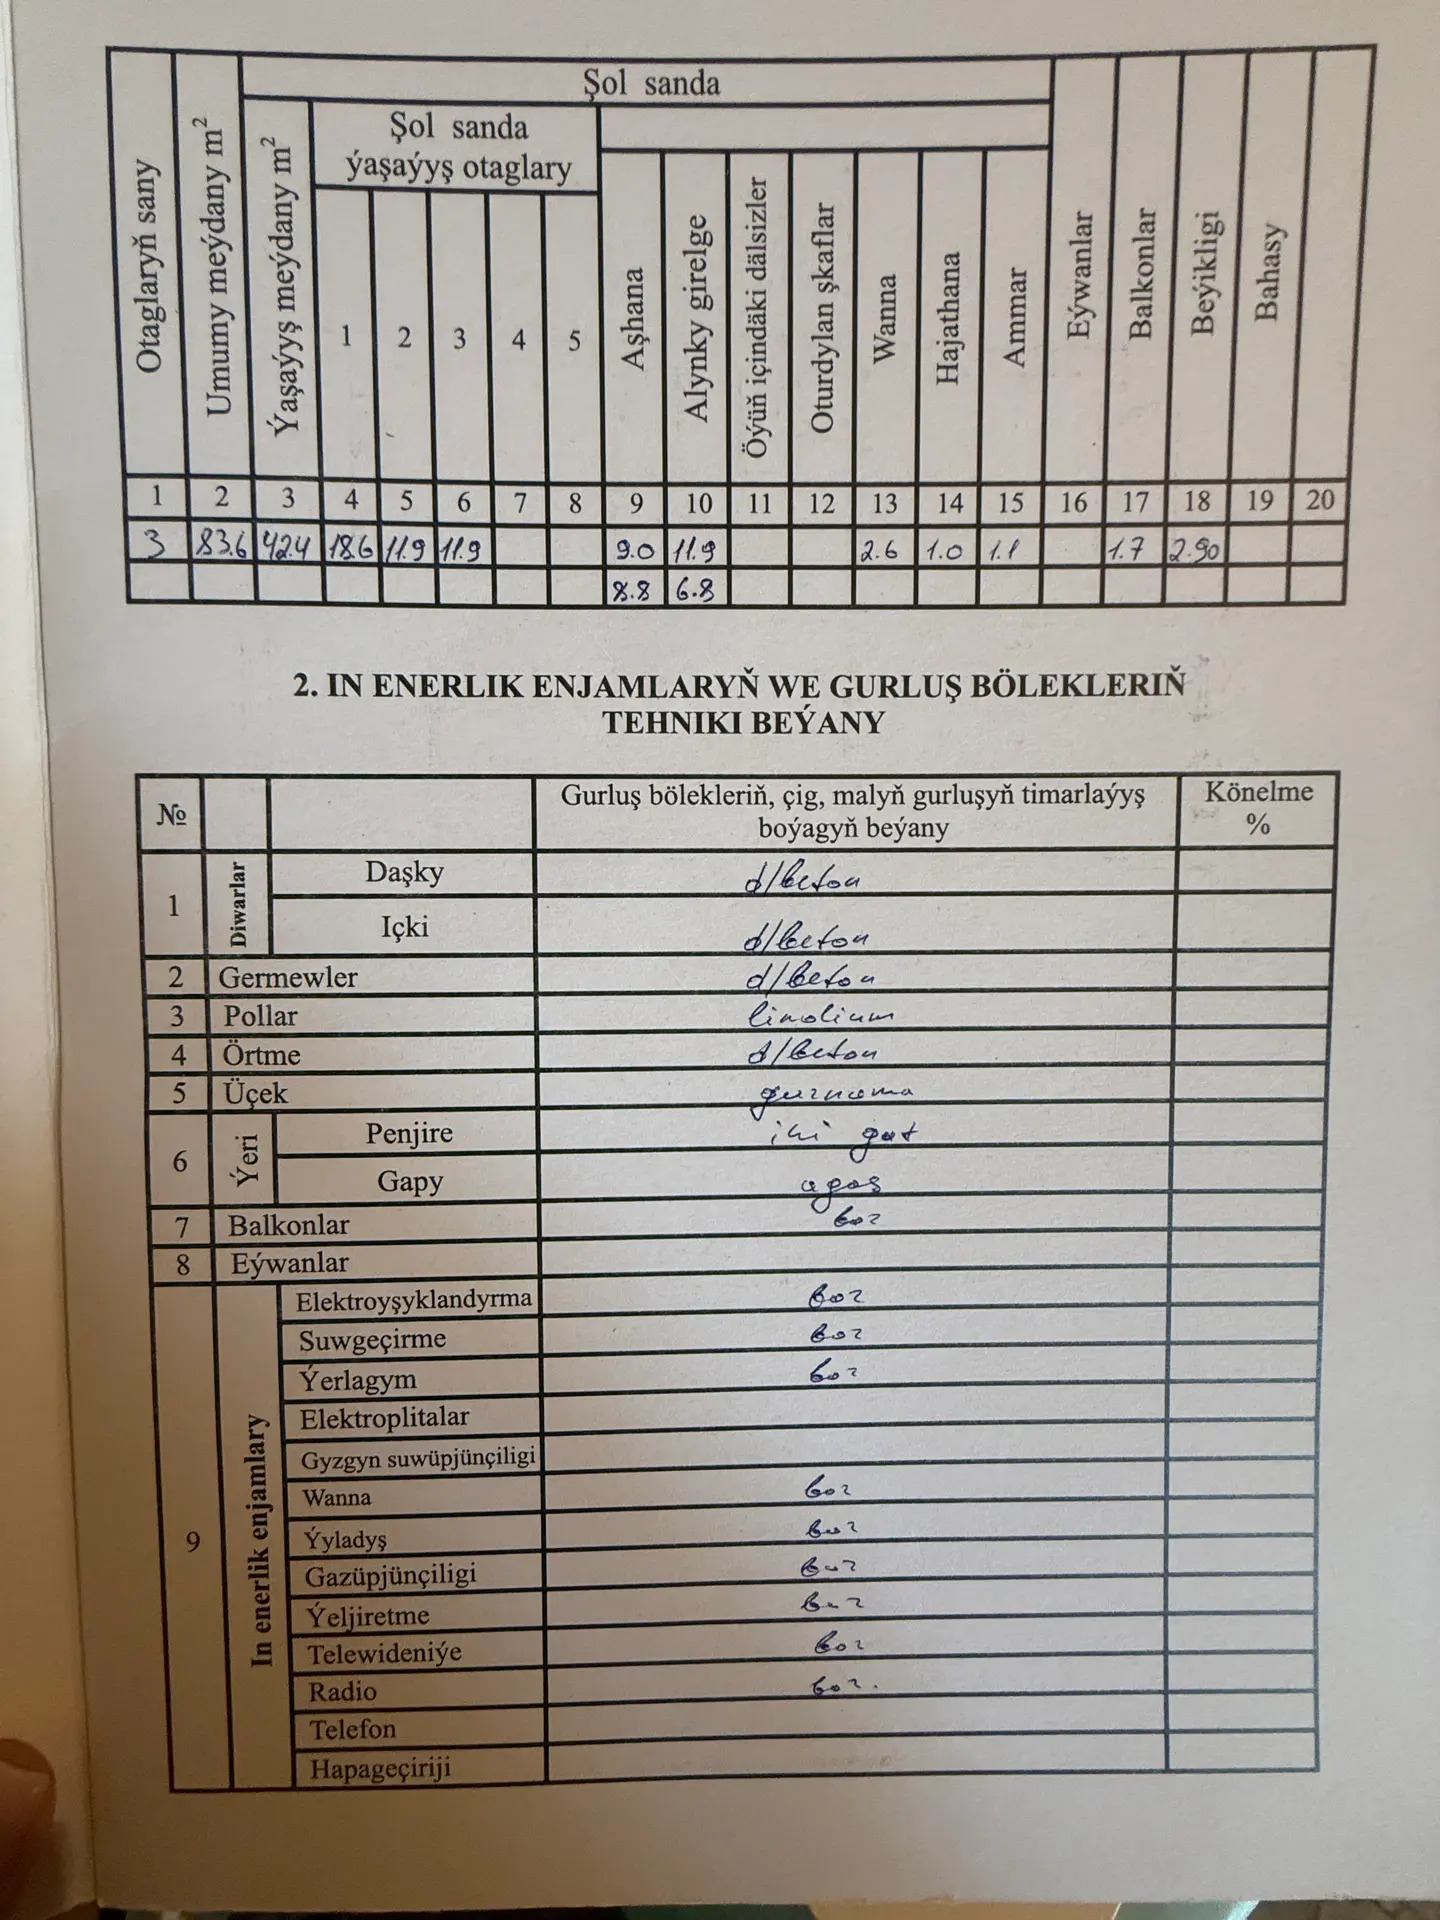 Şol sanda
Şol sanda
ýaşaýyş otaglary
Otaglaryň sany
Umumy meýdany m²
Ýaşaýyş meýdany m²
1 2 3 4 5
Aşhana
Alynky girelge
Öýüň içindäki dälsizler
Oturdylan şkaflar
Wanna
Hajathana
Ammar
Eýwanlar
Balkonlar
Beýikligi
Bahasy
1 2 3 4 5 6 7 8 9 10 11 12 13 14 15 16 17 18 19 20
3 83.6 42.4 18.6 11.9 11.9 9.0 11.9 2.6 1.0 1.1 1.7 2.90
8.8 6.8
2. IN ENERLIK ENJAMLARYŇ WE GURLUŞ BÖLEKLERIŇ
TEHNIKI BEÝANY
№ Gurluş bölekleriň, çig, malyň gurluşyň timarlaýyş Könelme
boýagyň beýany %
1 Diwarlar Daşky d/beton
Içki d/beton
2 Germewler d/beton
3 Pollar linolium
4 Örtme d/beton
5 Üçek gurnama
6 Ýeri Penjire iki gat
Gapy agaş
7 Balkonlar boz
8 Eýwanlar
9 In enerlik enjamlary
Elektroyşyklandyrma boz
Suwgeçirme boz
Ýerlagym boz
Elektroplitalar
Gyzgyn suwüpjünçiligi
Wanna boz
Ýyladyş boz
Gazüpjünçiligi boz
Ýeljiretme boz
Telewideniýe boz
Radio boz.
Telefon
Hapageçiriji